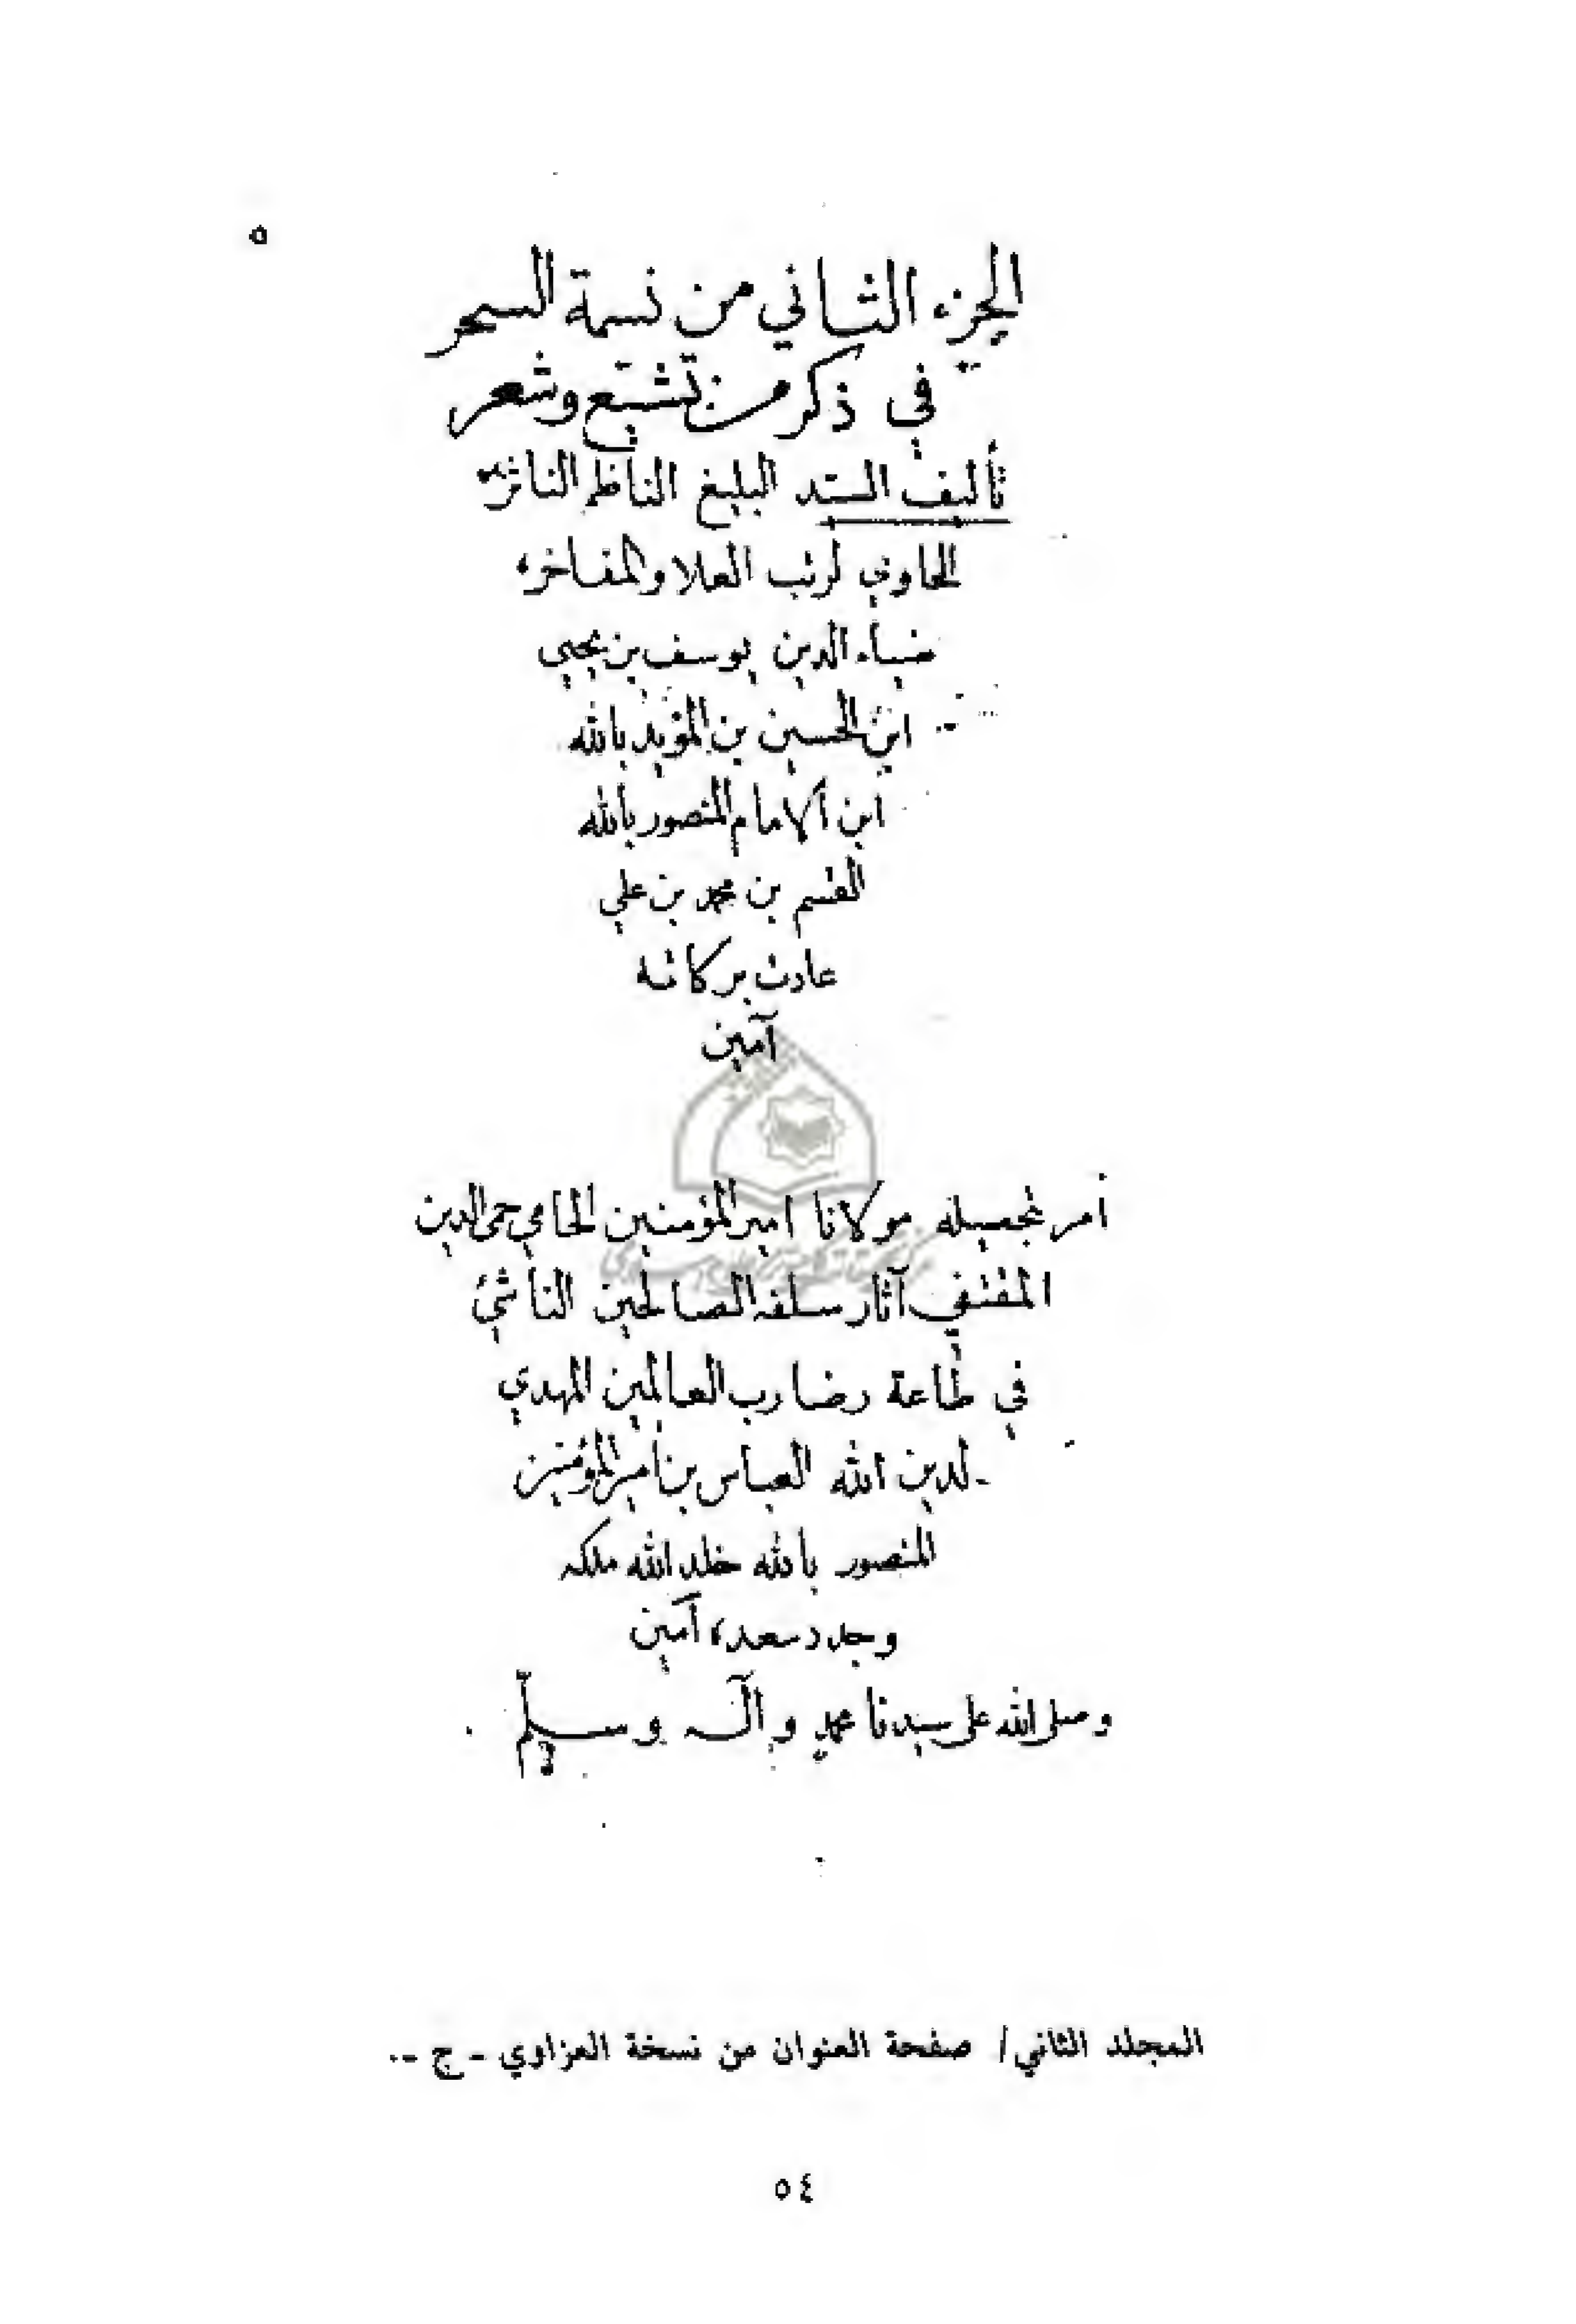 ٥
الجزء الثاني من نسمة السحر
في ذكر من تشيّع وشعر
تأليف السيّد البليغ الناظم الناثر
الحاوي لرتب العلا والمفاخر،
ضياء الدين يوسف بن يحيى
ابن الحسين بن المؤيد بالله
ابن الامام المنصور بالله
القسم بن محمد بن علي
عادت بركاته
آمين
أمر بتحصيله مولانا امير المؤمنين الحامي حمى الدين
المقتفي آثار سلفه الصالحين الناشئ
في طاعة رضا رب العالمين المهدي
لدين الله العباس بن أمير المؤمنين
المنصور بالله خلد الله ملكه
وجدد سعده آمين
وصلى الله على سيدنا محمد وآله وسلّم
المجلد الثاني/ صفحة العنوان من نسخة العزاوي - ج -.
٥٤